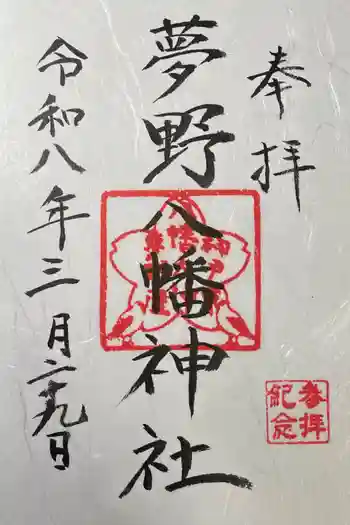 奉拝
夢野八幡神社
令和八年三月二十九日
参拝
記念